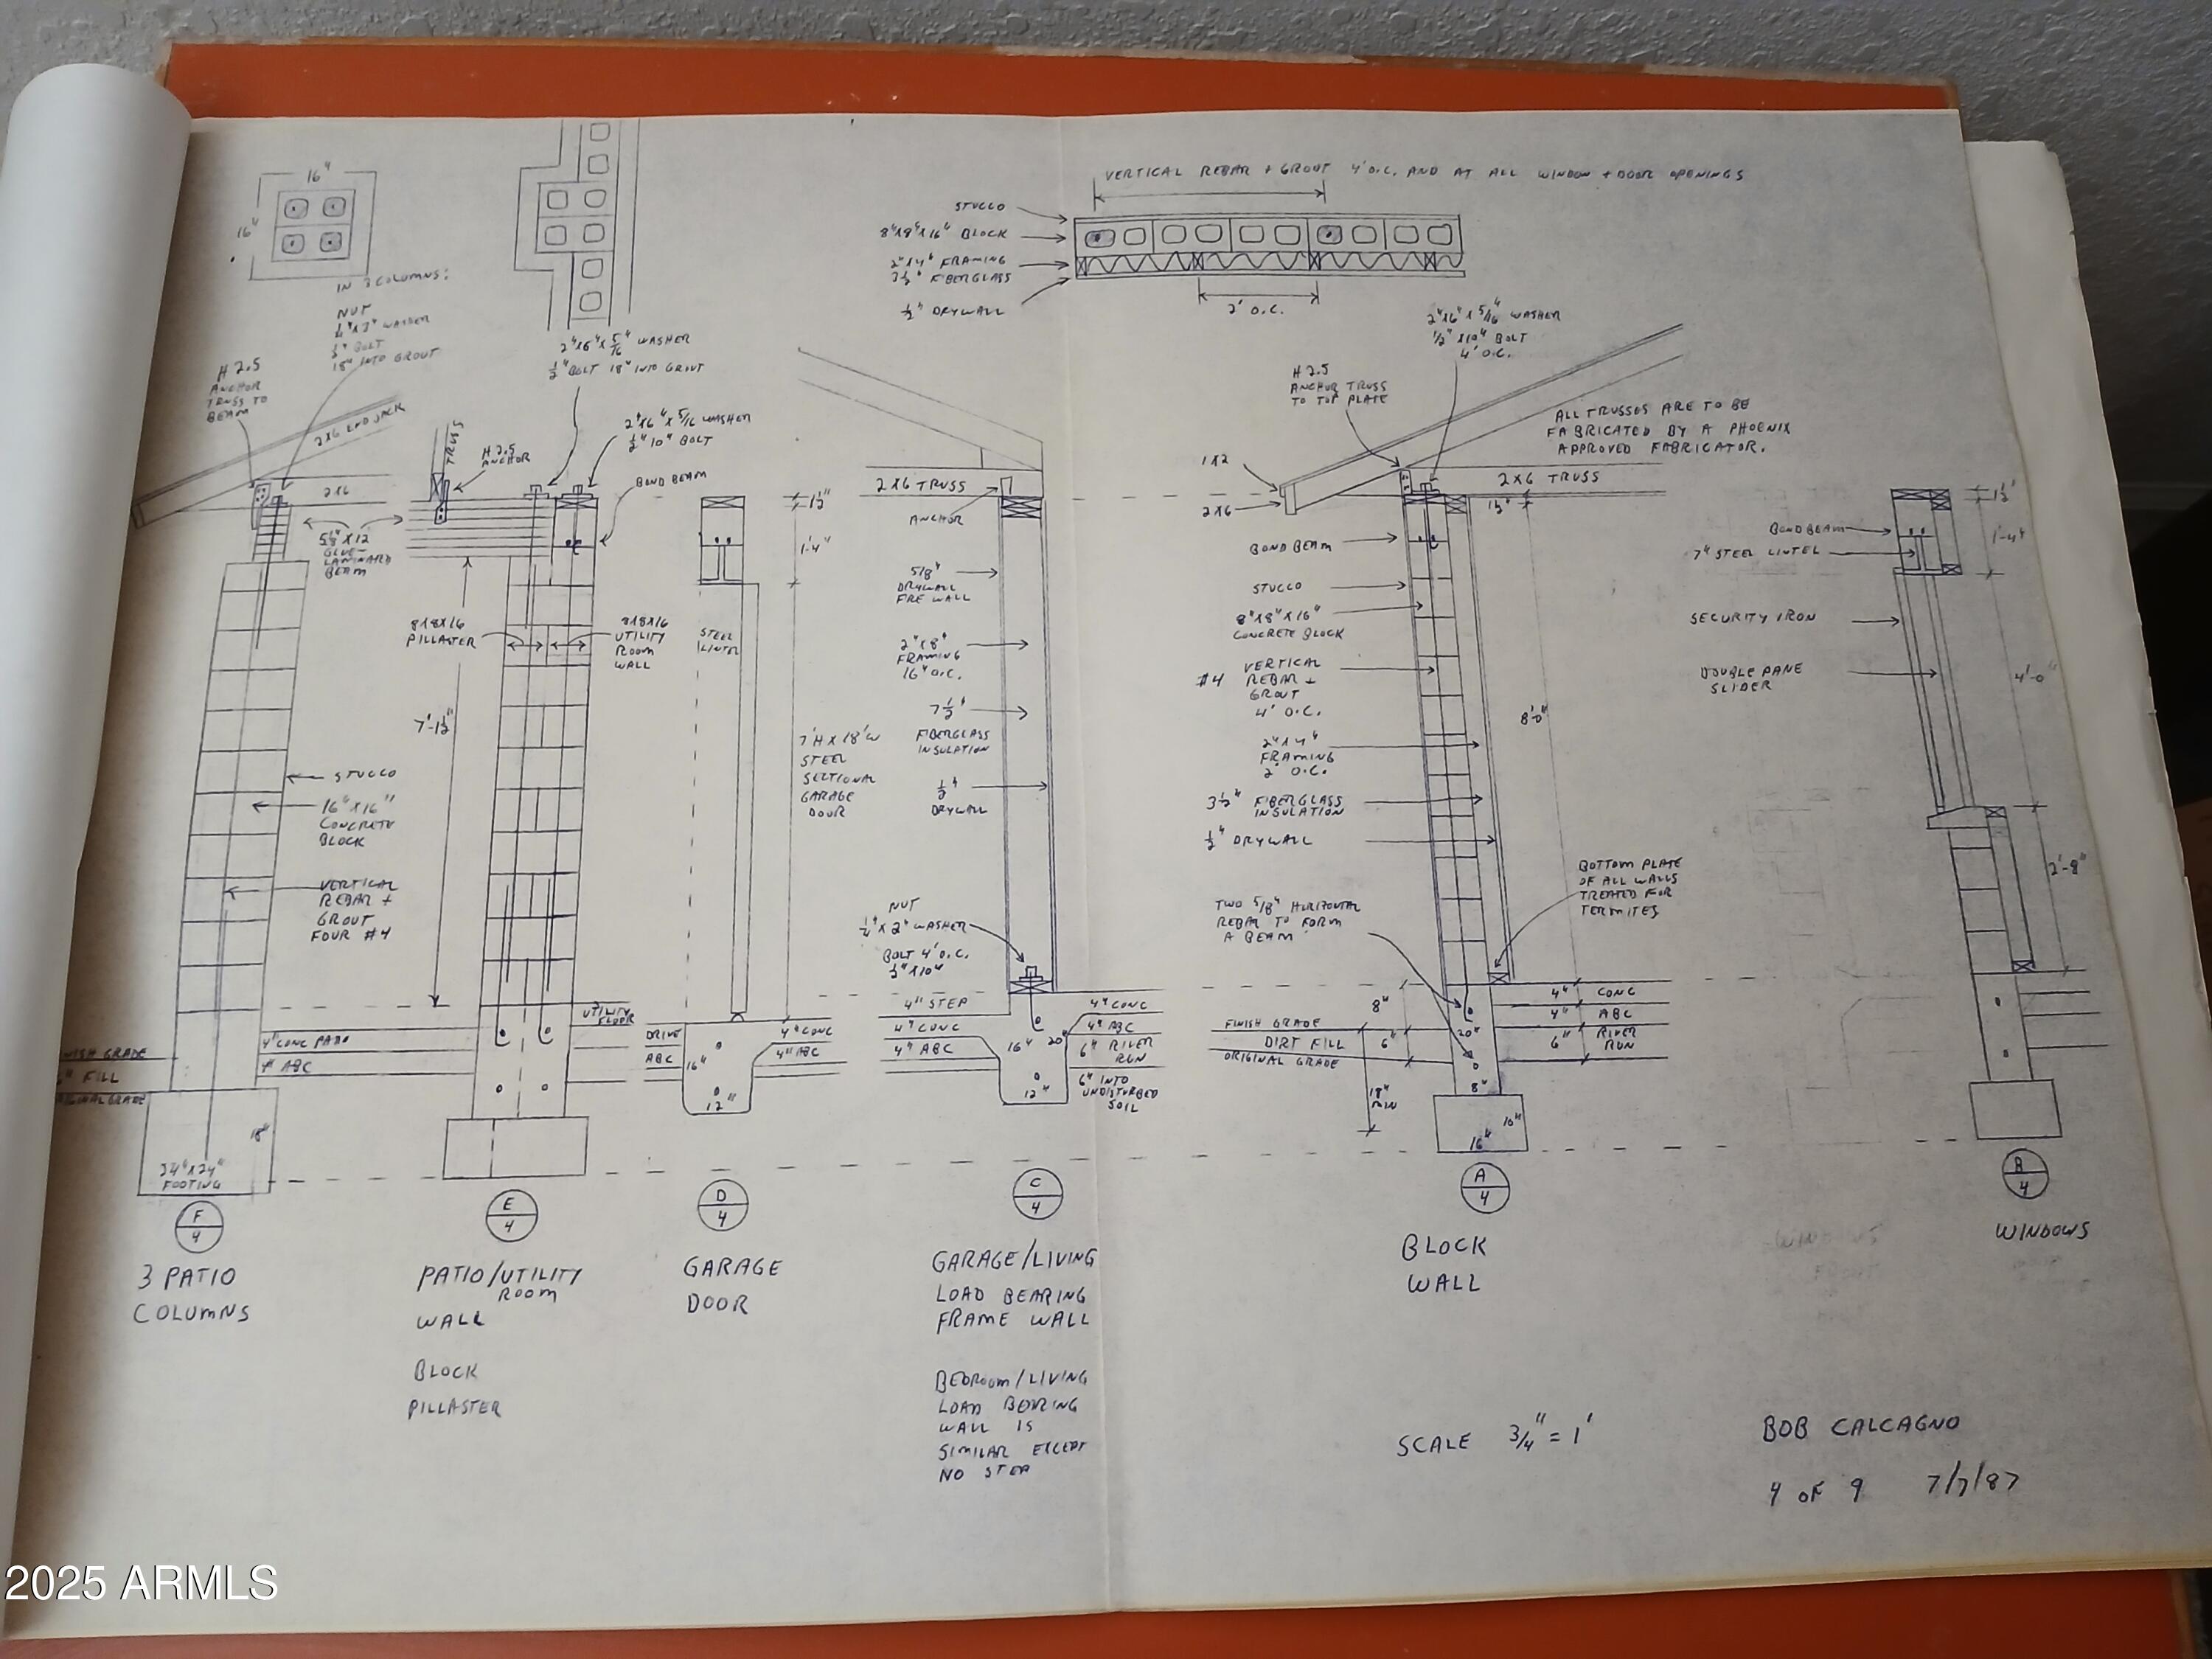 16"
16"
IN 3 COLUMNS:
NUT
BOLT
18" INTO GROUT
H 2.5
ANCHOR
TRUSS TO
BEAM
2X6 END JACK
2X6
5 1/8" X 12
GLUE-
LAMINATED
BEAM
STUCCO
16" X 16"
CONCRETE
BLOCK
VERTICAL
REBAR +
GROUT
FOUR #4
4" CONC PATIO
4" ABC
18"
FOOTING
F
4
3 PATIO
COLUMNS
2"X6"X5/16" WASHER
1/2" BOLT 18" INTO GROUT
TRUSS
H 2.5
ANCHOR
2"X6"X5/16 WASHER
1/2" 10" BOLT
BOND BEAM
8X8X16
PILLASTER
8X8X16
UTILITY
ROOM
WALL
7'-1 1/2"
UTILITY
FLOOR
E
4
PATIO/UTILITY
ROOM
WALL
BLOCK
PILLASTER
1 1/2"
1'-4"
STEEL
LINTEL
7'H X 18'W
STEEL
SECTIONAL
GARAGE
DOOR
DRIVE
ABC
4" CONC
4" ABC
16"
12"
D
4
GARAGE
DOOR
2X6 TRUSS
ANCHOR
5/8"
DRYWALL
FIRE WALL
2"X8"
FRAMING
16" O.C.
7 1/2"
FIBERGLASS
INSULATION
1/2"
DRYWALL
NUT
1/4" X 2" WASHER
BOLT 4' O.C.
1/2" X 10"
4" STEP
4" CONC
4" ABC
4" CONC
4" ABC
6" RIVER
RUN
6" INTO
UNDISTURBED
SOIL
16"
20"
12"
C
4
GARAGE/LIVING
LOAD BEARING
FRAME WALL
BEDROOM/LIVING
LOAD BEARING
WALL IS
SIMILAR EXCEPT
NO STEP
VERTICAL REBAR + GROUT 4' O.C. AND AT ALL WINDOW + DOOR OPENINGS
STUCCO
8"X8"X16" BLOCK
2"X4" FRAMING
3 1/2" FIBERGLASS
1/2" DRYWALL
2' O.C.
2"X6"X5/16" WASHER
1/2" X10" BOLT
4' O.C.
H 2.5
ANCHOR TRUSS
TO TOP PLATE
ALL TRUSSES ARE TO BE
FABRICATED BY A PHOENIX
APPROVED FABRICATOR.
1X2
2X6
2X6 TRUSS
1 1/2"
BOND BEAM
STUCCO
8"X8"X16"
CONCRETE BLOCK
#4 VERTICAL
REBAR +
GROUT
4' O.C.
2"X4"
FRAMING
2' O.C.
3 1/2" FIBERGLASS
INSULATION
1/2" DRYWALL
8'-0"
TWO 5/8" HORIZONTAL
REBAR TO FORM
A BEAM
BOTTOM PLATE
OF ALL WALLS
TREATED FOR
TERMITES
FINISH GRADE
DIRT FILL
ORIGINAL GRADE
8"
6"
18"
MIN
20"
8"
10"
16"
4" CONC
4" ABC
6" RIVER
RUN
A
4
BLOCK
WALL
BOND BEAM
7" STEEL LINTEL
SECURITY IRON
DOUBLE PANE
SLIDER
1 1/2"
1'-4"
4'-0"
2'-8"
B
4
WINDOWS
SCALE 3/4" = 1'
BOB CALCAGNO
4 OF 9 7/7/87
2025 ARMLS